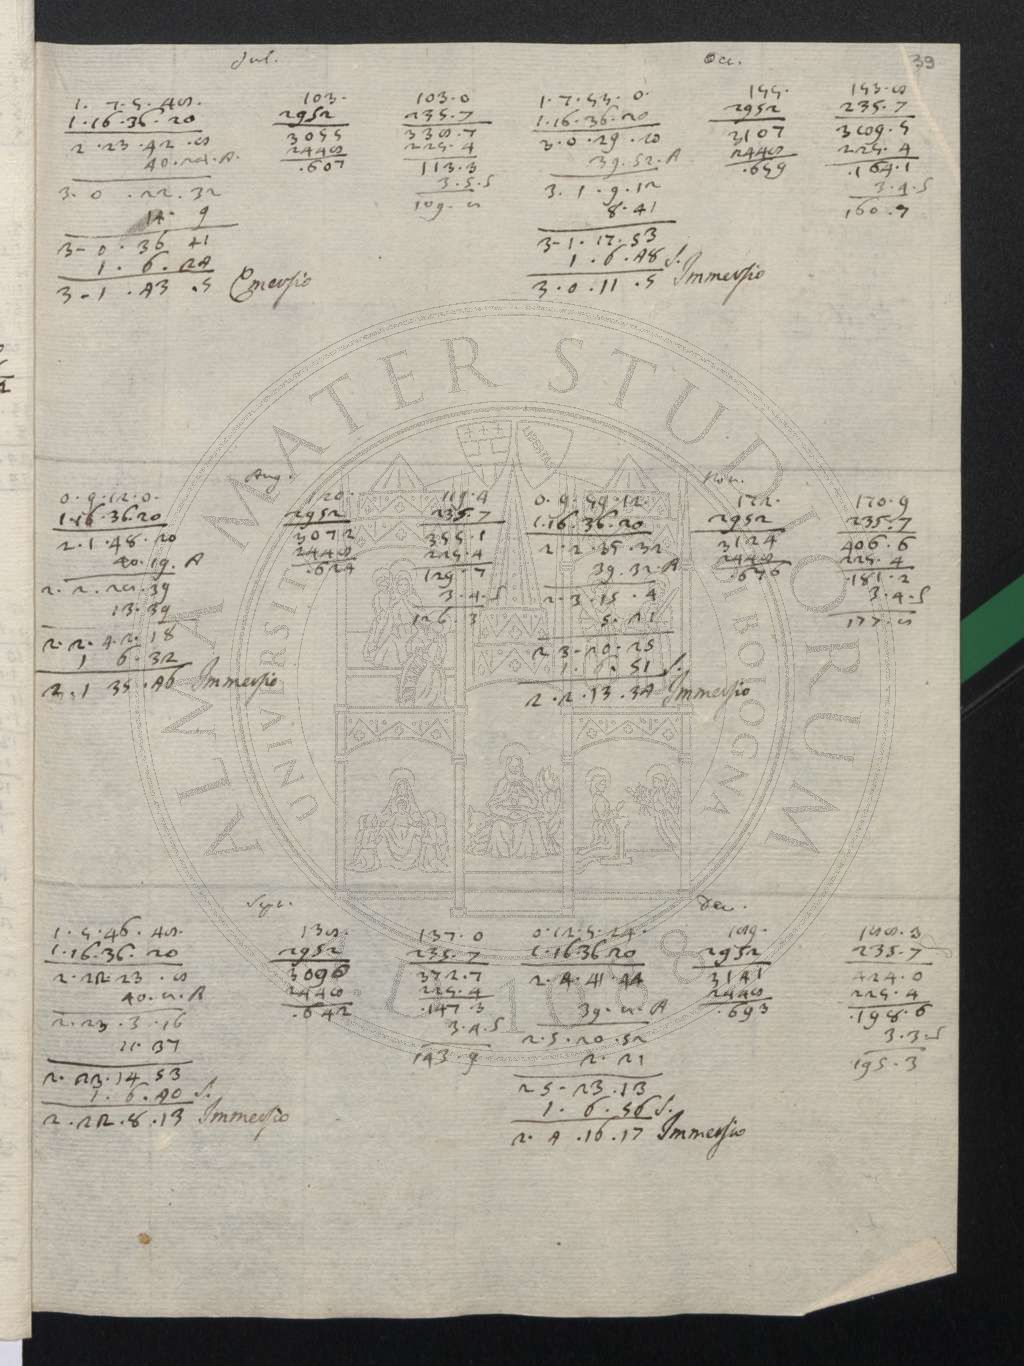 39
Jul.
1. 7. 5. 48.
1.16.36.20
2.23.42.8
40.24.A.
3.0.22.32
14.9
3-0.36 41
1.6.24
3-1.43.5 Emersio
103.
2952
3055
2448
.607
103.0
235.7
338.7
225.4
113.3
3.5.S
109.8
Oct.
1.7.53.0.
1.16.36.20
3.0.29.20
39.52.A
3.1.9.12
8.41
3-1.17.53
1.6.48 S.
3.0.11.5 Immersio
155.
2952
3107
2448
.659
153.8
235.7
389.5
225.4
.164.1
3.4.S
160.7
Aug.
0.9.12.0.
1.16.36.20
2.1.48.20
40.19.A
2.2.28.39
13.39
2.2.42.18
1 6.32
2.1 35.46 Immersio
120.
2952
3072
2448
.624
119.4
235.7
355.1
225.4
129.7
3.4.S
126.3
Nov.
0.9.59.12.
1.16.36.20
2.2.35.32
39.32.A
2.3.15.4
5.21
2 3-20.25
1.6.51 S.
2.2.13.34 Immersio
172.
2952
3124
2448
.676
170.9
235.7
406.6
225.4
.181.2
3.4.S
177.8
Sept.
1.5.46.48.
1.16.36.20
2.22.23.8
40.8.A
2.23.3.16
11.37
2.23.14 53
1.6.40 S.
2.22.8.13 Immersio
138.
2952
3090
2448
.642
137.0
235.7
372.7
225.4
.147.3
3.4.S
143.9
Dec.
0.12.5.24.
1.16.36.20
2.4.41.44
39.8.A
2.5.20.52
2.21
2 5-23.13
1.6.56 S.
2.4.16.17 Immersio
189.
2952
3141
2448
.693
188.3
235.7
424.0
225.4
.198.6
3.3.S
195.3
ALMA MATER STUDIORUM
UNIVERSITÀ DI BOLOGNA
A.D. 1088